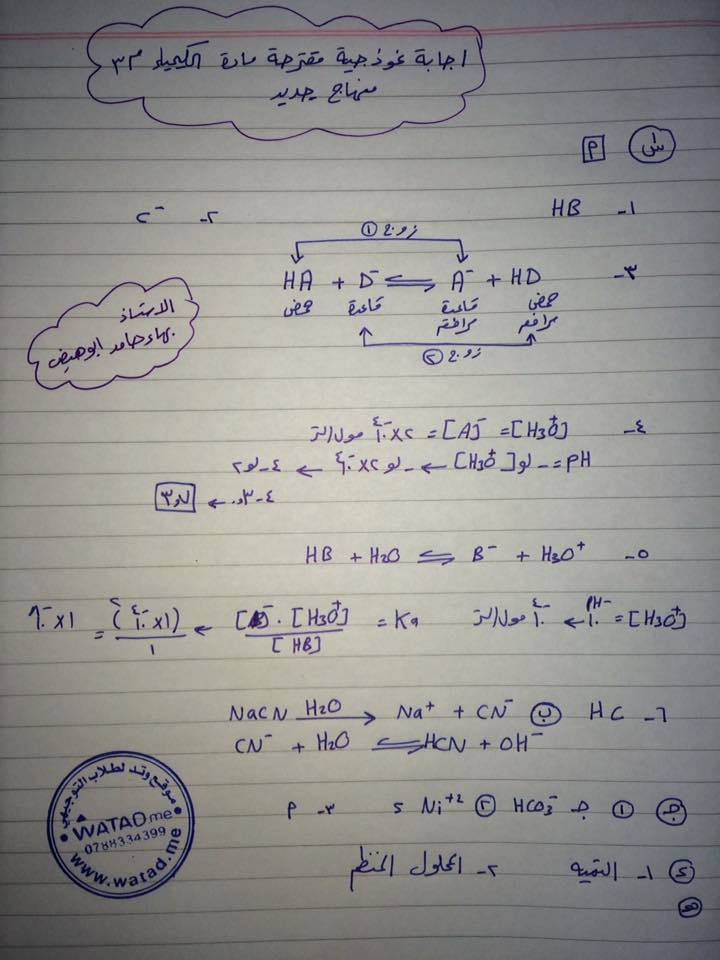 اجابة نموذجية مقترحة مادة الكيمياء م٣
منهاج جديد
س١ أ
١- HB ٢- C⁻
زوج ①
٣- HA + D⁻ ⇌ A⁻ + HD
حمض قاعدة قاعدة مرافقة حمض مرافق
زوج ②
الاستاذ
بهاء حامد ابوهيض
٤- [H3O⁺] = [A⁻] = ٢×١٠⁻⁴ مول/لتر
PH = -لو[H3O⁺] ← -لو ٢×١٠⁻⁴ ← ٤-لو٢
٤-٠,٣ ← ٣,٧
٥- HB + H2O ⇌ B⁻ + H3O⁺
[H3O⁺] = ١٠⁻ᴾᴴ ← ١٠⁻⁴ مول/لتر Ka = [B⁻]·[H3O⁺] / [HB] ← (١×١٠⁻⁴)² / ١ = ١×١٠⁻⁸
٦- HC ب NaCN —H2O→ Na⁺ + CN⁻
CN⁻ + H2O ⇌ HCN + OH⁻
ج ① ج HCO3⁻ ② Ni⁺² د ٣- أ
د ١- التميه ٢- المحلول المنظم
هـ
موقع وتد لطلاب التوجيهي
WATAD.me
0788334399
www.watad.me